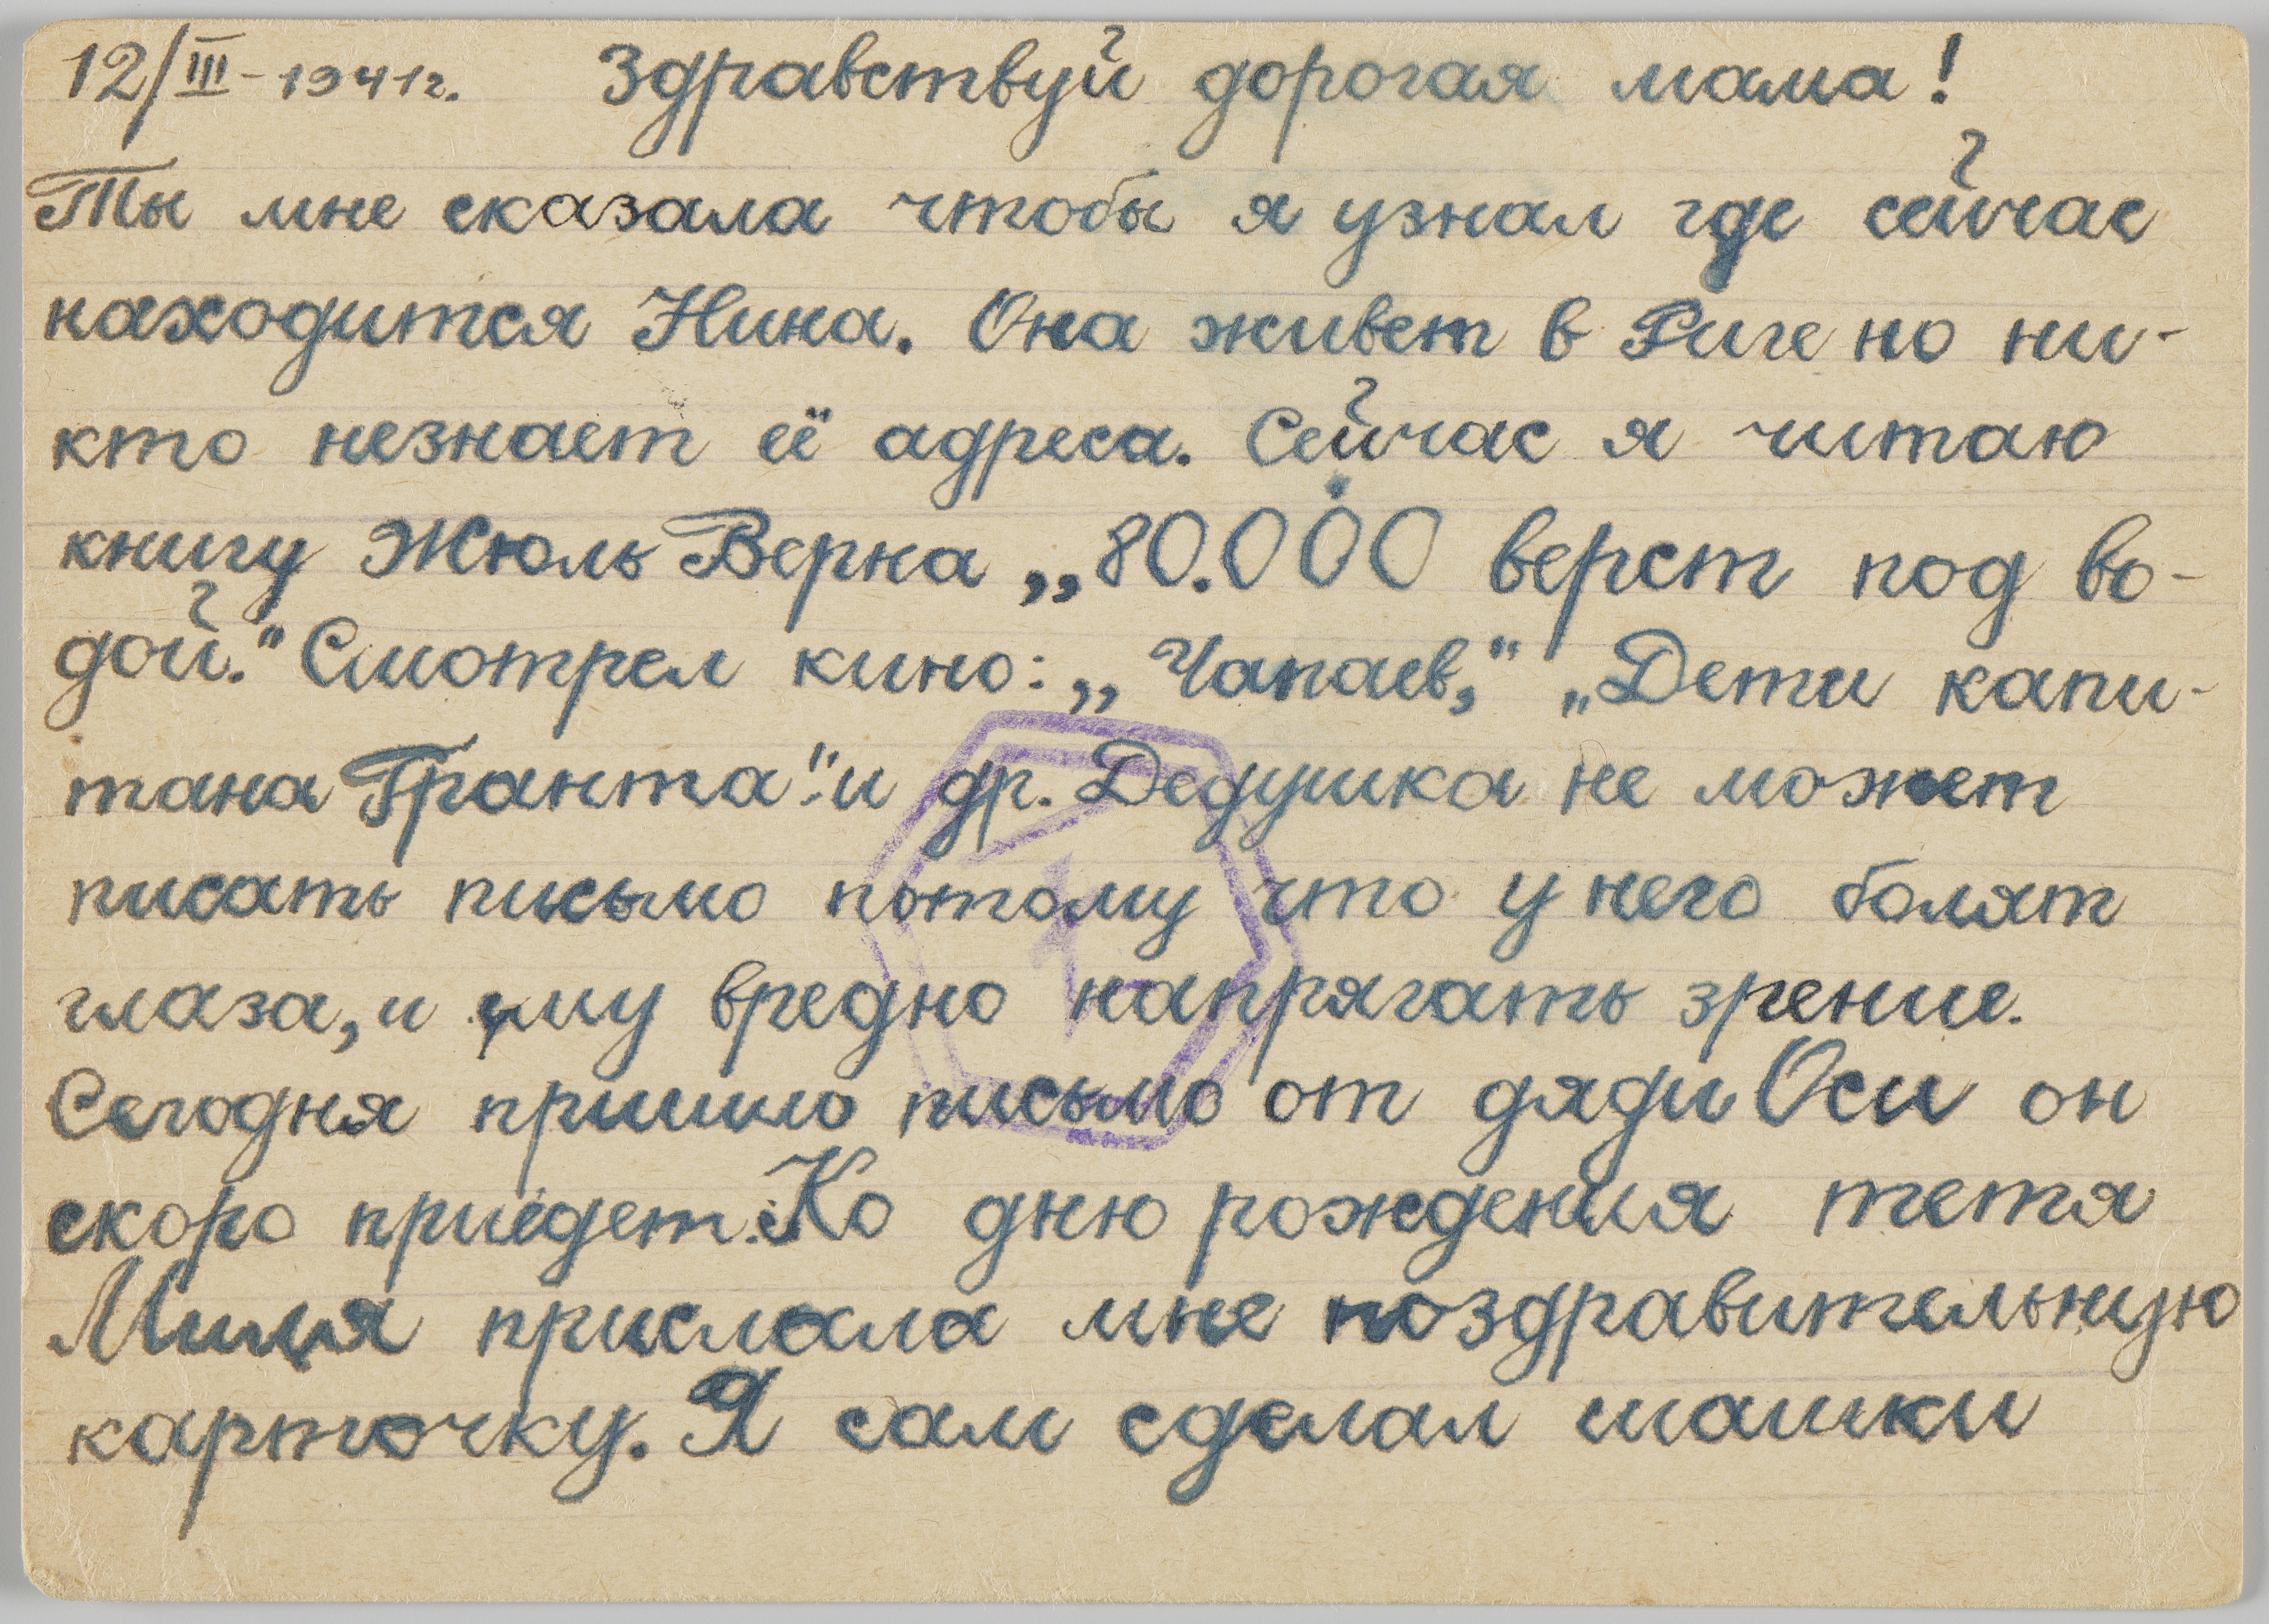 12/III-1941г. Здравствуй дорогая мама!
Ты мне сказала чтобы я узнал где сейчас
находится Нина. Она живет в Риге но ни-
кто незнает её адреса. Сейчас я читаю
книгу Жюль Верна „80.000 верст под во-
дой." Смотрел кино: „Чапаев," „Дети капи-
тана Гранта" и др. Дедушка не может
писать письмо потому что у него болят
глаза, и ему вредно напрягать зрение.
Сегодня пришло письмо от дяди Оси он
скоро приедет. Ко дню рождения тетя
Миля прислала мне поздравительную
карточку. Я сам сделал шашки